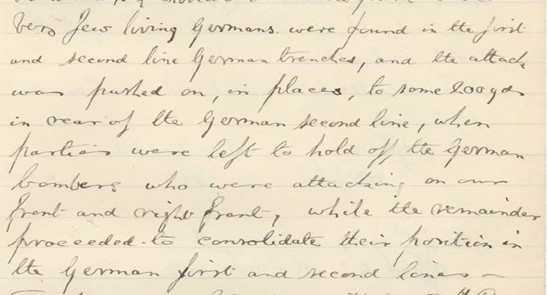 very few living Germans were found in the first
and second line German trenches, and the attack
was pushed on, in places, to some 200 yds
in rear of the German second line, when
parties were left to hold off the German
bombers who were attacking on our
front and right front, while the remainder
proceeded to consolidate their position in
the German first and second lines –